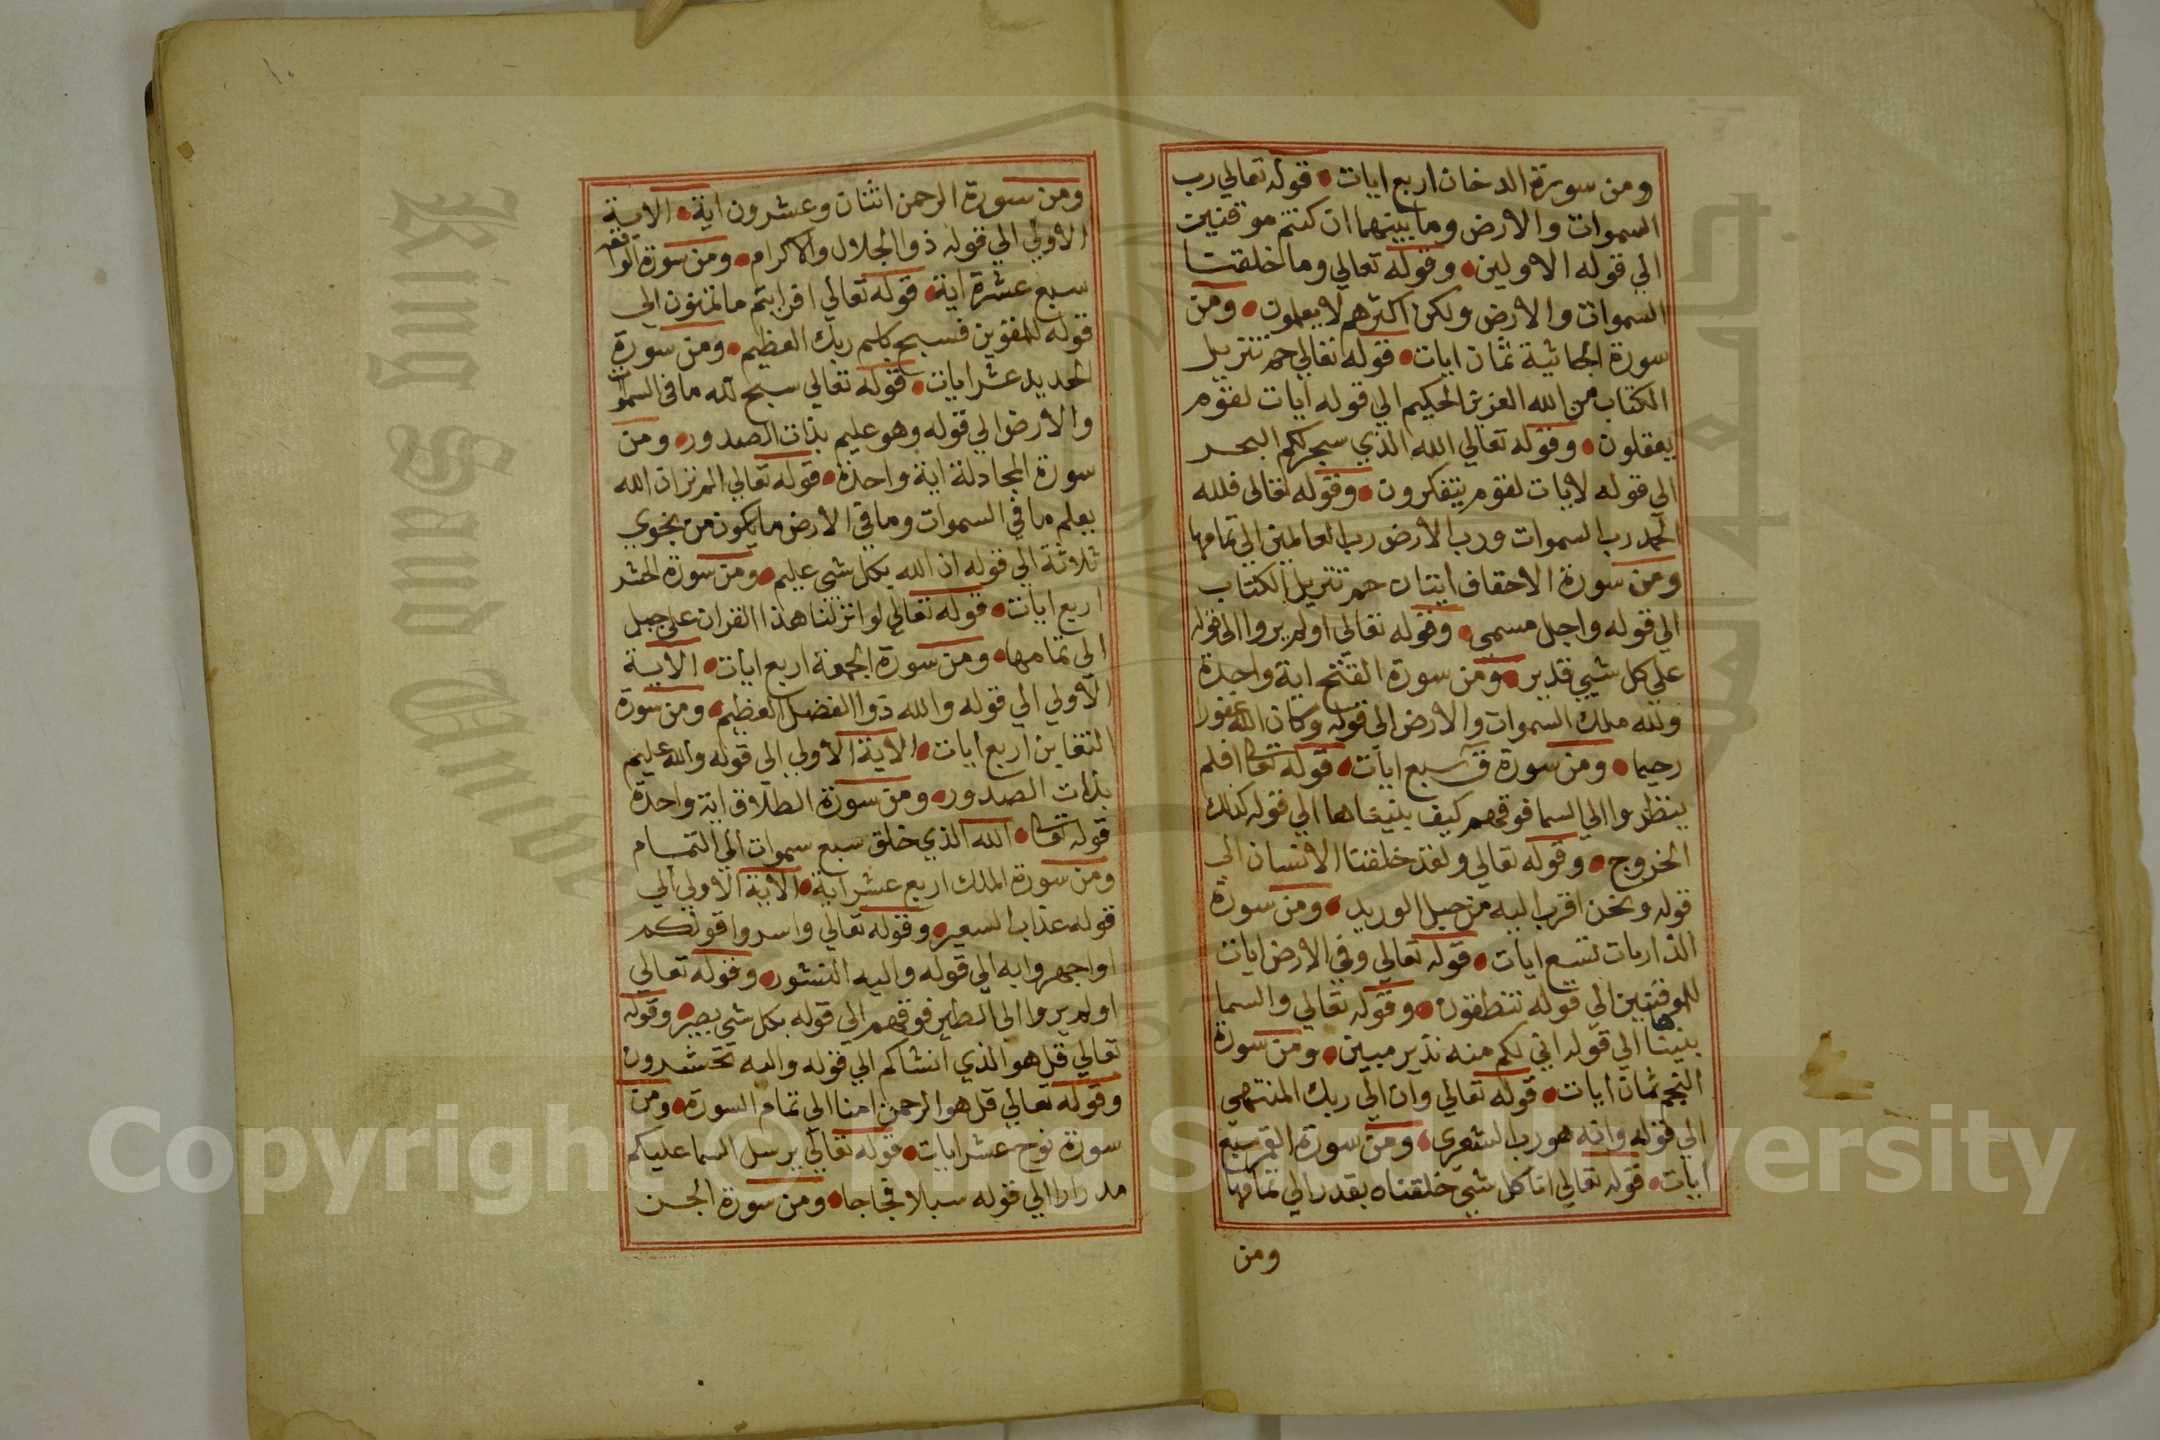 ومن سورة الدخان اربع ايات • قوله تعالي رب
السموات والارض وما بينهما ان كنتم موقنين
الي قوله الاولين • وقوله تعالي وما خلقنا
السموات والارض ولكن اكثرهم لا يعلمون • ومن
سورة الجاثية ثمان ايات • قوله تعالي حم تنزيل
الكتاب من الله العزيز الحكيم الي قوله ايات لقوم
يعقلون • وقوله تعالي الله الذي سخر لكم البحر
الي قوله لايات لقوم يتفكرون • وقوله تعالي فلله
الحمد رب السموات ورب الارض رب العالمين الي تمامها
ومن سورة الاحقاف ايتان حم تنزيل الكتاب
الي قوله واجل مسمي • وقوله تعالي اولم يروا الي قوله
علي كل شيي قدير • ومن سورة الفتح اية واحدة
ولله ملك السموات والارض الي قوله وكان الله غفورا
رحيما • ومن سورة ق سبع ايات • قوله تعالي افلم
ينظروا الي السما فوقهم كيف بنيناها الي قوله كذلك
الخروج • وقوله تعالي ولقد خلقنا الانسان الي
قوله ونحن اقرب اليه من حبل الوريد • ومن سورة
الذاريات تسع ايات • قوله تعالي وفي الارض ايات
للموقنين الي قوله تنطقون • وقوله تعالي والسما
بنيناها الي قوله اني لكم منه نذير مبين • ومن سورة
النجم ثمان ايات • قوله تعالي وان الي ربك المنتهي
الي قوله وانه هو رب الشعري • ومن سورة القمر سبع
ايات • قوله تعالي انا كل شيي خلقناه بقدر الي تمامها
ومن
ومن سورة الرحمن اثنتان وعشرون اية • الاية
الاولي الي قوله ذو الجلال والاكرام • ومن سورة الواقعة
سبع عشرة اية • قوله تعالي افرايتم ما تمنون الي
قوله للمقوين فسبح باسم ربك العظيم • ومن سورة
الحديد عشر ايات • قوله تعالي سبح لله ما في السموات
والارض الي قوله وهو عليم بذات الصدور • ومن
سورة المجادلة اية واحدة • قوله تعالي الم تر ان الله
يعلم ما في السموات وما في الارض ما يكون من نجوي
ثلاثة الي قوله ان الله بكل شي عليم • ومن سورة الحشر
اربع ايات • قوله تعالي لو انزلنا هذا القران علي جبل
الي تمامها • ومن سورة الجمعة اربع ايات • الاية
الاولي الي قوله والله ذوا الفضل العظيم • ومن سورة
التغابن اربع ايات • الاية الاولي الي قوله والله عليم
بذات الصدور • ومن سورة الطلاق اية واحدة
قوله تعالي • الله الذي خلق سبع سموات الي التمام
ومن سورة الملك اربع عشر اية • الاية الاولي الي
قوله عذاب السعير • وقوله تعالي واسروا قولكم
او اجهروا به الي قوله واليه النشور • وقوله تعالي
اولم يروا الي الطير فوقهم الي قوله بكل شي بصير • وقوله
تعالي قل هو الذي انشاكم الي قوله واليه تحشرون
وقوله تعالي قل هو الرحمن امنا الي تمام السورة • ومن
سورة نوح عشر ايات • قوله تعالي يرسل السما عليكم
مدرارا الي قوله سبلا فجاجا • ومن سورة الجن
King Saud University
Copyright © King Saud University